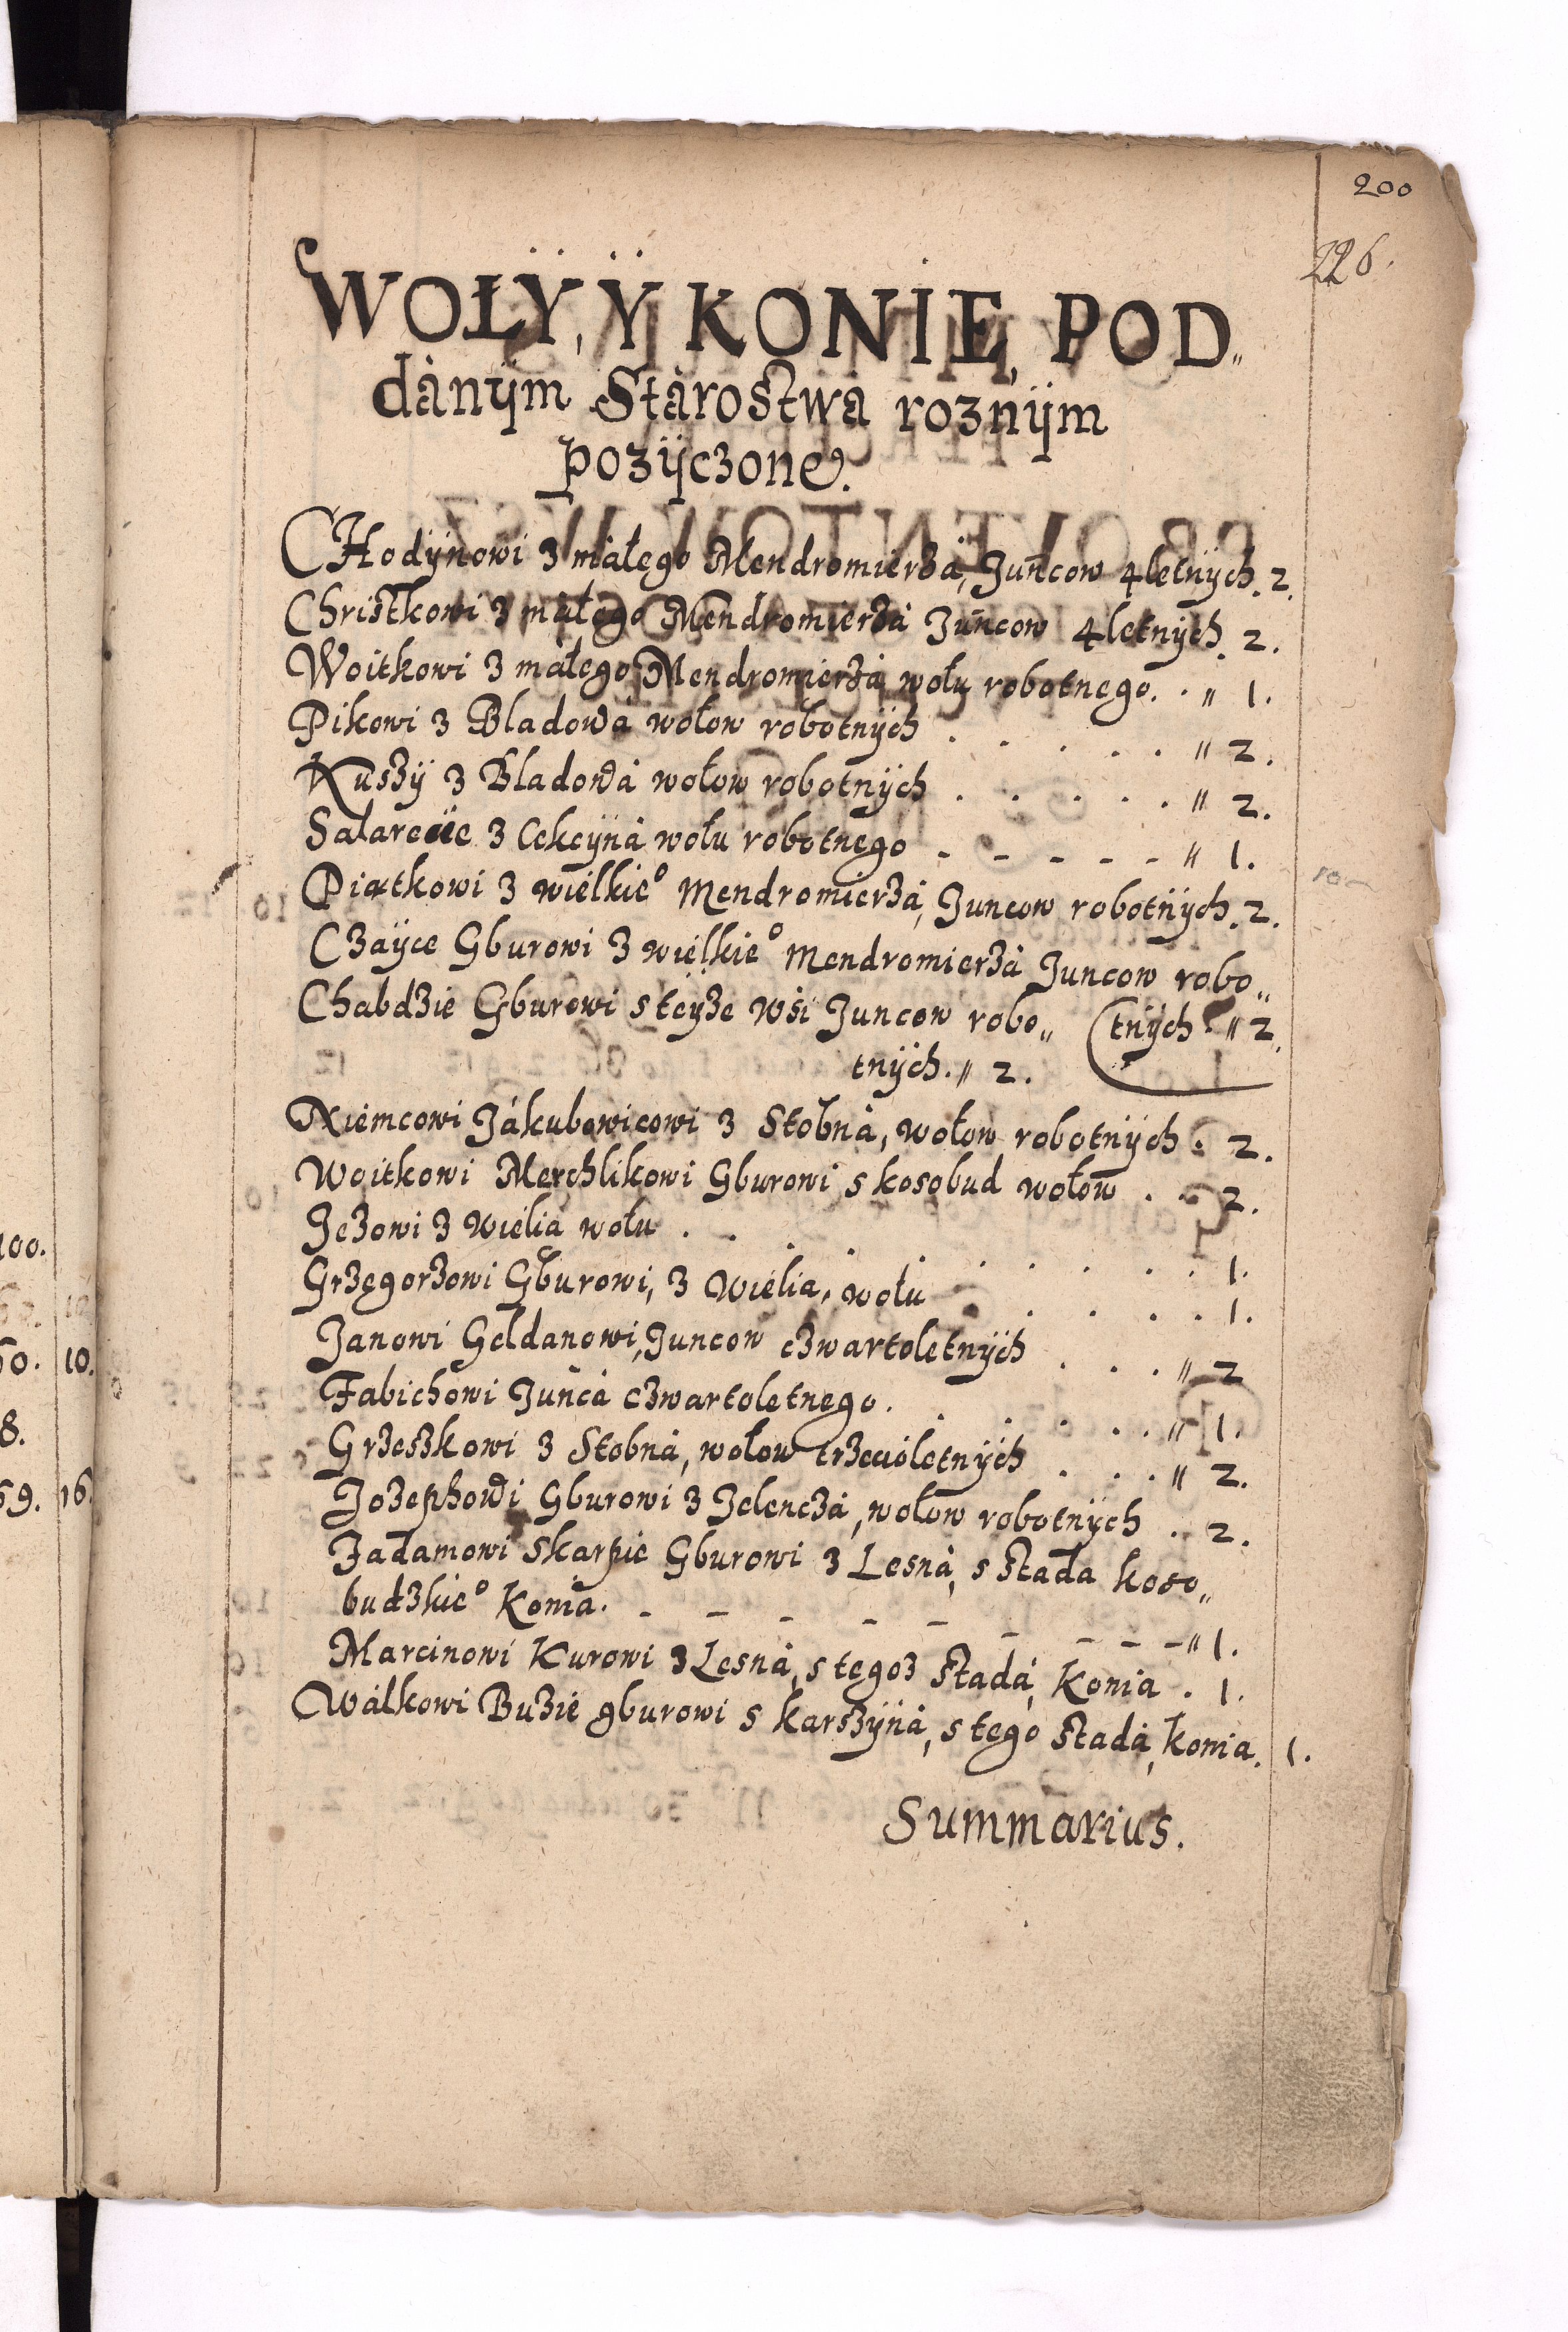 200
226.
WOŁÿ, ÿ KONIE, POD„
dánÿm Stárostwá roznÿm
pozÿczone.
CHodÿnowi z máłego Mendromierzá, Juncow 4letnÿch. 2.
Christkowi z máłego Mendromierzá Juncow 4letnÿch. 2.
Woitkowi z máłego Mendromierzá wołu robotnego. . „ 1.
Pikowi z Bladowá wołow robotnÿch . . . . . „ 2.
Kuszÿ z Bladowá wołow robotnÿch . . . . . „ 2.
z Cekcÿná wołu robotnego - - - - - „ 1.
Piatkowi z wielkie° Mendromierzá, Juncow robotnÿch. 2.
Czaÿce Gburowi z wielkie° Mendromierzá Juncow robo„
Chabdzie Gburowi s teÿze wsi Juncow robo„ (tnÿch. „ 2.
tnÿch. „ 2.
Niemcowi Jákubowicowi z Stobná, wołow robotnÿch . 2.
Woitkowi Merchlikowi Gburowi s kosobud wołow . . 2.
Jezowi z Wielia wołu . . . . . . . . . 1.
Grzegorzowi Gburowi, z Wielia, wołu . . . . . 1.
Janowi Geldanowi, Juncow czwartoletnÿch . . . „ 2
Fabichowi Juncá czwartoletnego. . . . . . „ 1.
Grzeszkowi z Stobná, wołow trzecioletnÿch . . . „ 2.
Jozephowi Gburowi z Jelenczá, wołow robotnÿch . . 2.
Jadamowi Skarpie Gburowi z Lesná, s stada koso„
budzkie° Konia. - - - - - - - - - „ 1.
Marcinowi Kurowi z Lesná, s tegoz stadá, Konia . 1.
Walkowi Buzie gburowi s karszÿná, s tego stadá, konia. 1.
Summarius.
100.
10.
8.
59. 16.